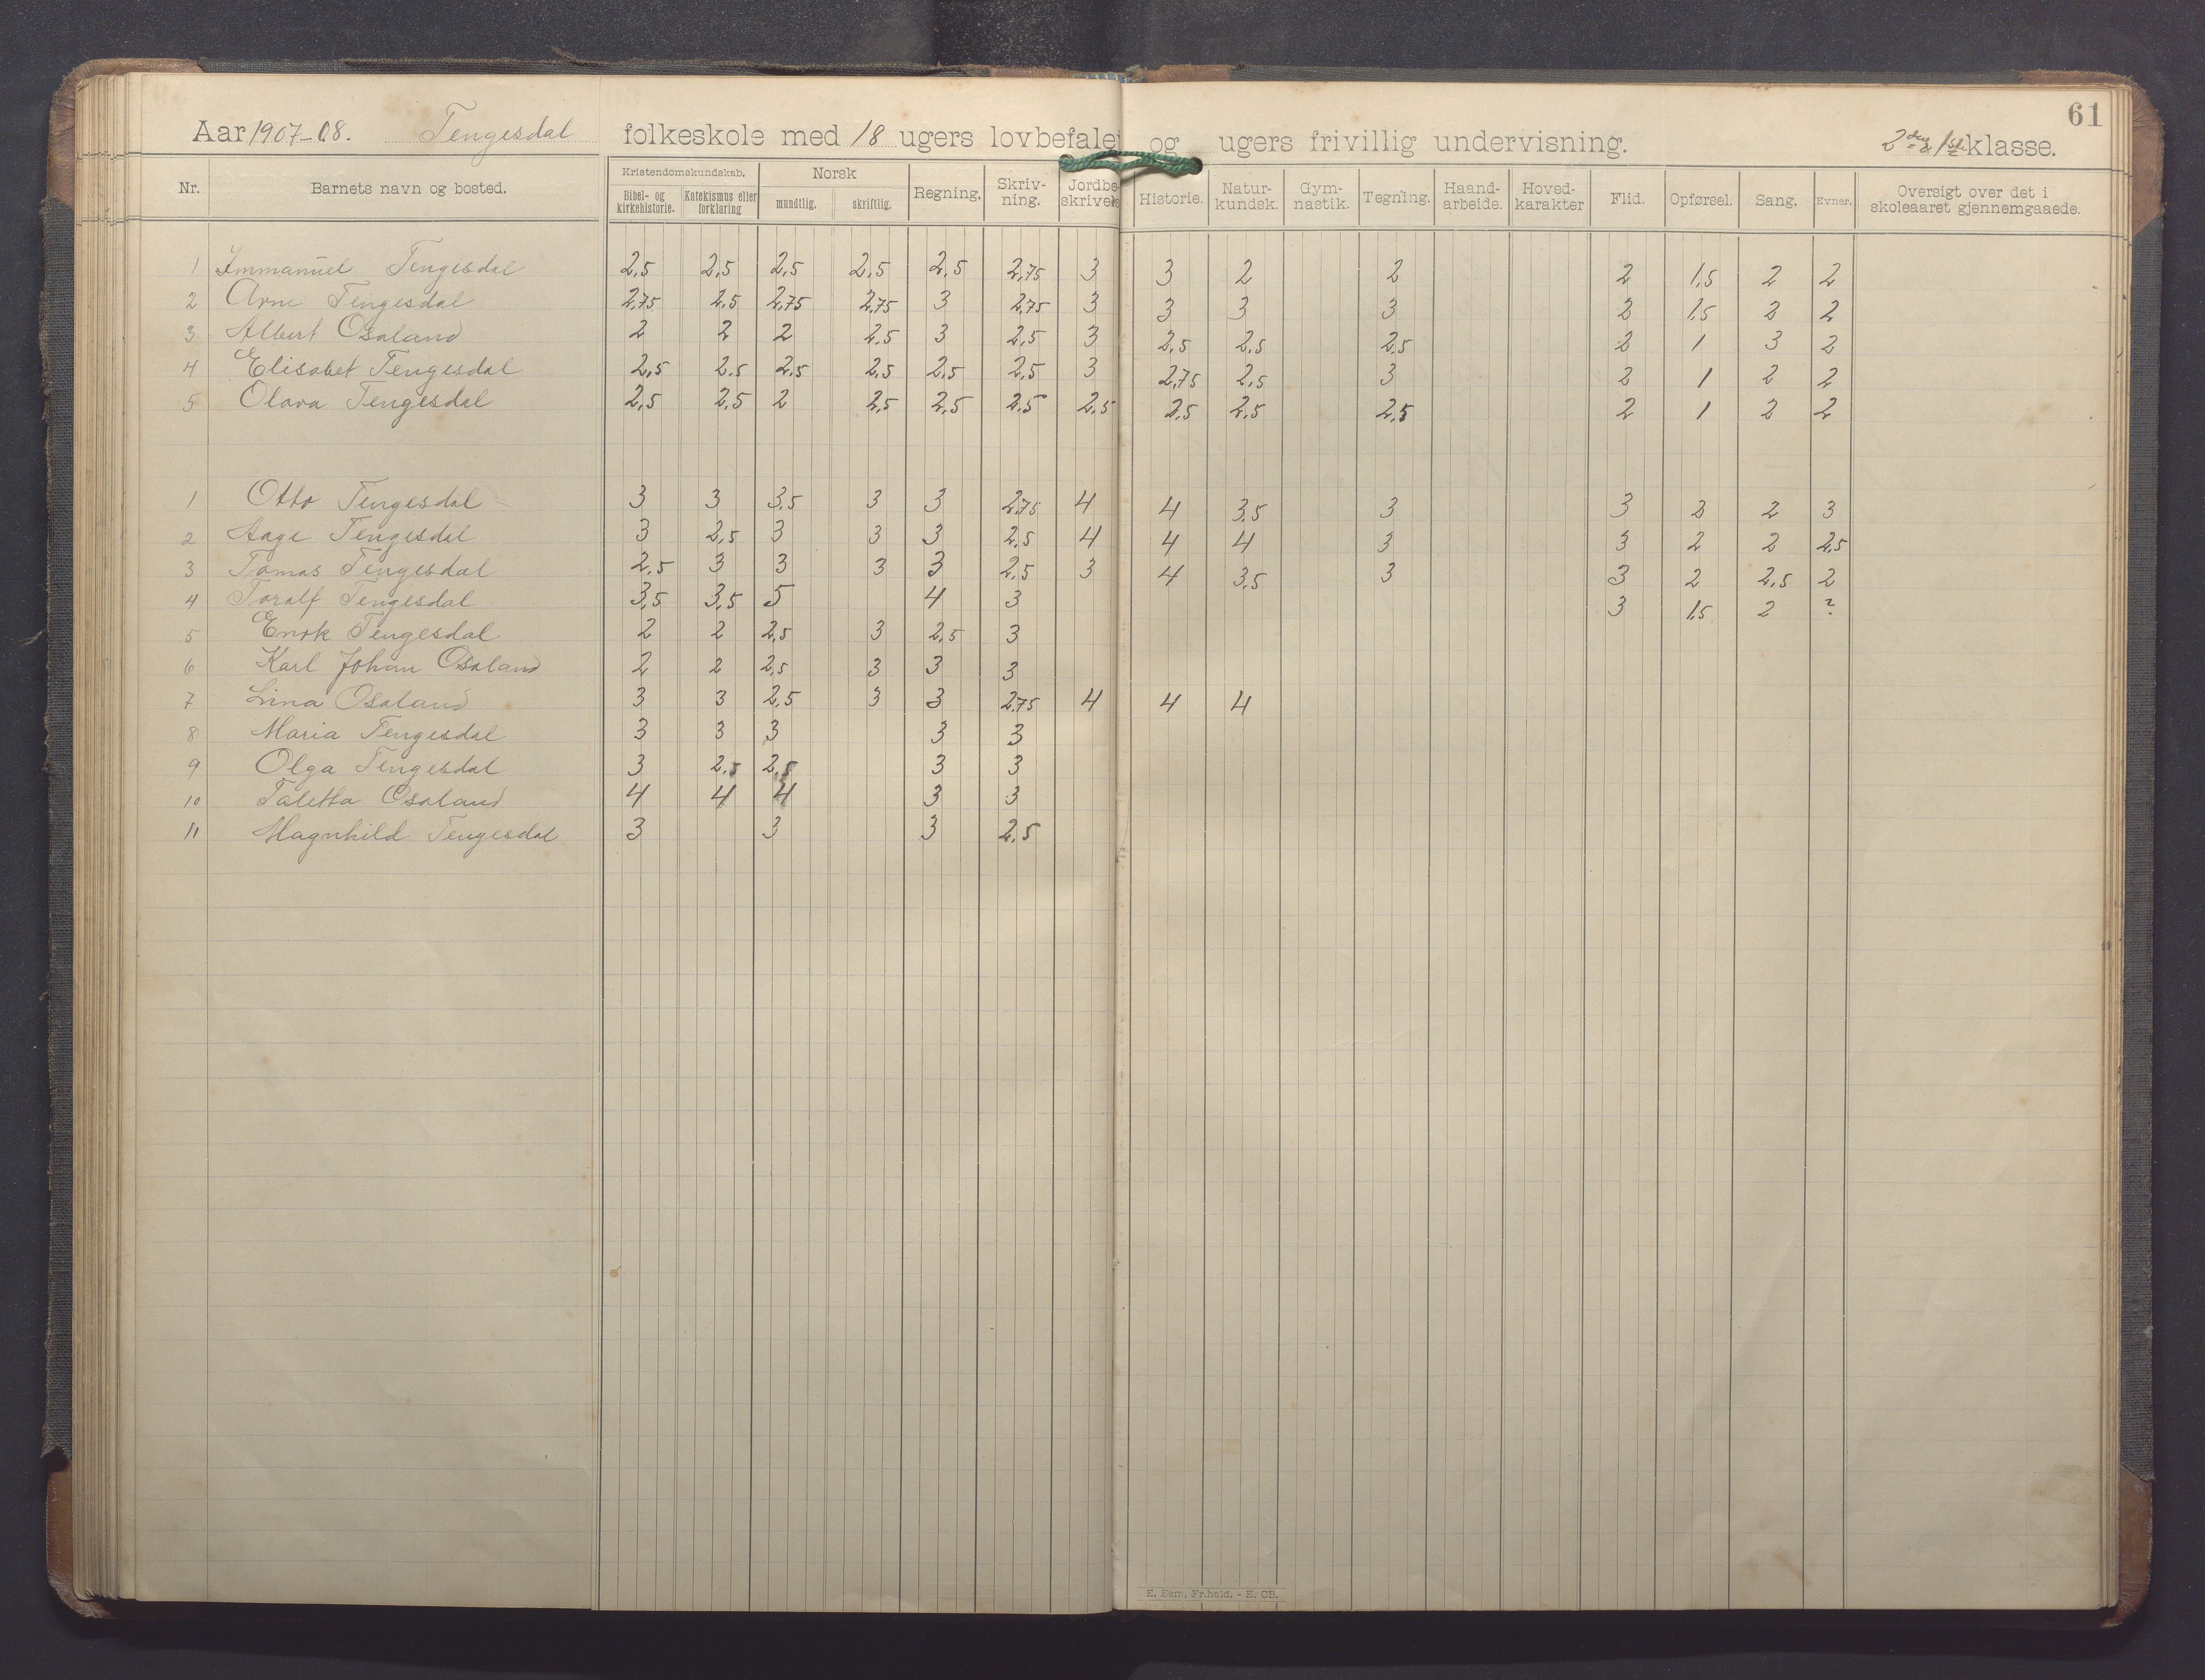 61
Aar 1907-08. Tengesdal folkeskole med 18 ugers lovbefalet og ugers frivillig undervisning. 2den & 1ste klasse.
Nr. Barnets navn og bosted. Kristendomskundskab. Bibel- og kirkehistorie. Katekismus eller forklaring Norsk mundtlig. skriftlig. Regning. Skriv-ning. Jordbe-skrivels Historie. Natur-kundsk. Gym-nastik. Tegning. Haand-arbeide. Hoved-karakter Flid. Opførsel. Sang. Evner. Oversigt over det i skoleaaret gjennemgaaede.
1 Immanuel Tengesdal 2,5 2,5 2,5 2,5 2,5 2,75 3 3 2 2 2 1,5 2 2
2 Arne Tengesdal 2,75 2,5 2,75 2,75 3 2,75 3 3 3 3 2 1,5 2 2
3 Albert Osaland 2 2 2 2,5 3 2,5 3 2,5 2,5 2,5 2 1 3 2
4 Elisabet Tengesdal 2,5 2,5 2,5 2,5 2,5 2,5 3 2,75 2,5 3 2 1 2 2
5 Olava Tengesdal 2,5 2,5 2 2,5 2,5 2,5 2,5 2,5 2,5 2,5 2 1 2 2
1 Otto Tengesdal 3 3 3,5 3 3 2,75 4 4 3,5 3 3 2 2 3
2 Aage Tengesdal 3 2,5 3 3 3 2,5 4 4 4 3 3 2 2 2,5
3 Tomas Tengesdal 2,5 3 3 3 3 2,5 3 4 3,5 3 3 2 2,5 2
4 Toralf Tengesdal 3,5 3,5 5 4 3 3 1,5 2 ?
5 Enok Tengesdal 2 2 2,5 3 2,5 3
6 Karl Johan Osaland 2 2 2,5 3 3 3
7 Lina Osaland 3 3 2,5 3 3 2,75 4 4 4
8 Maria Tengesdal 3 3 3 3 3
9 Olga Tengesdal 3 2,5 2,5 3 3
10 Taletta Osaland 4 4 4 3 3
11 Magnhild Tengesdal 3 3 3 2,5
E. Sem, Fr.hald. - E. CB.